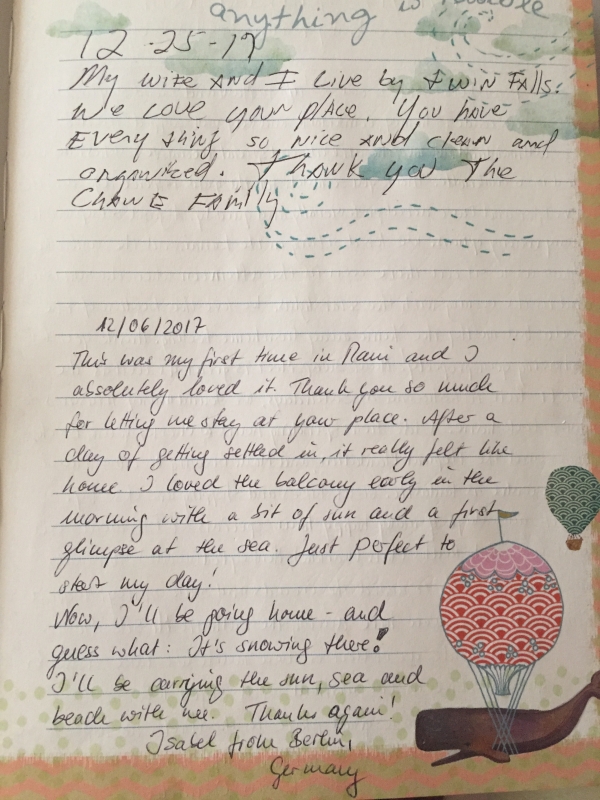 anything is possible
12-25-17
My wife and I Live by Twin Falls.
We Love your place. You have
Everything so nice and clean and
organized. Thank you The
Family
12/06/2017
This was my first time in Maui and I
absolutely loved it. Thank you so much
for letting me stay at your place. After a
day of getting settled in, it really felt like
home. I loved the balcony early in the
morning with a bit of sun and a first
glimpse at the sea. Just perfect to
start my day!
Now, I'll be going home - and
guess what: It's snowing there!
I'll be carrying the sun, sea and
beach with me. Thanks again!
Isabel from Berlin,
Germany